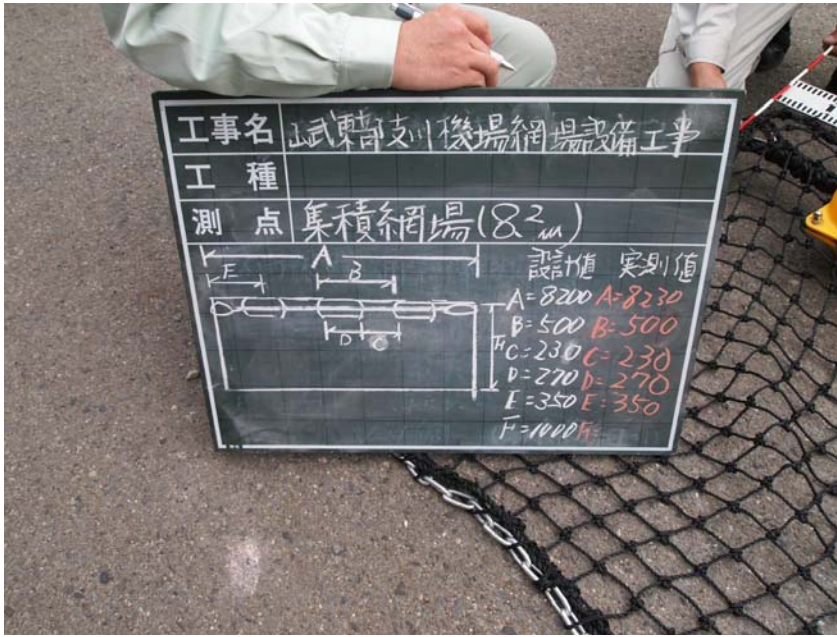 工事名 山武東部支川機場網場設備工事
工種
測点 集積網場(8.2m)
A
E B
D C
F
設計値 実測値
A=8200 A=8230
B=500 B=500
C=230 C=230
D=270 D=270
E=350 E=350
F=1000 F=